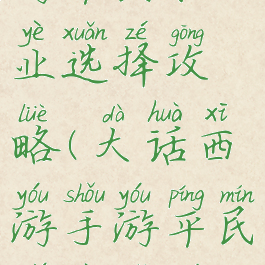 yè xuǎn zé gōng
业选择攻
lüè dà huà xī
略(大话西
yóu shǒu yóu píng mín
游手游平民